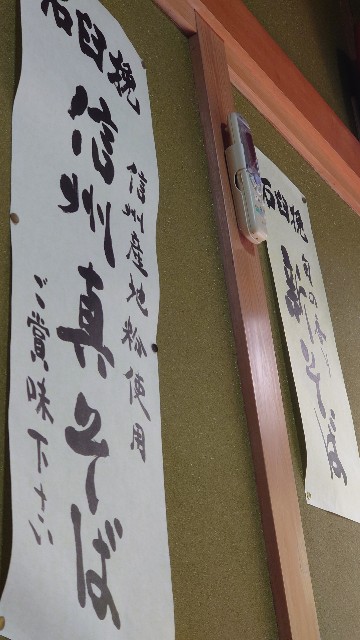 石臼挽
信州産地粉使用
信州真そば
ご賞味下さい
石臼挽
そば